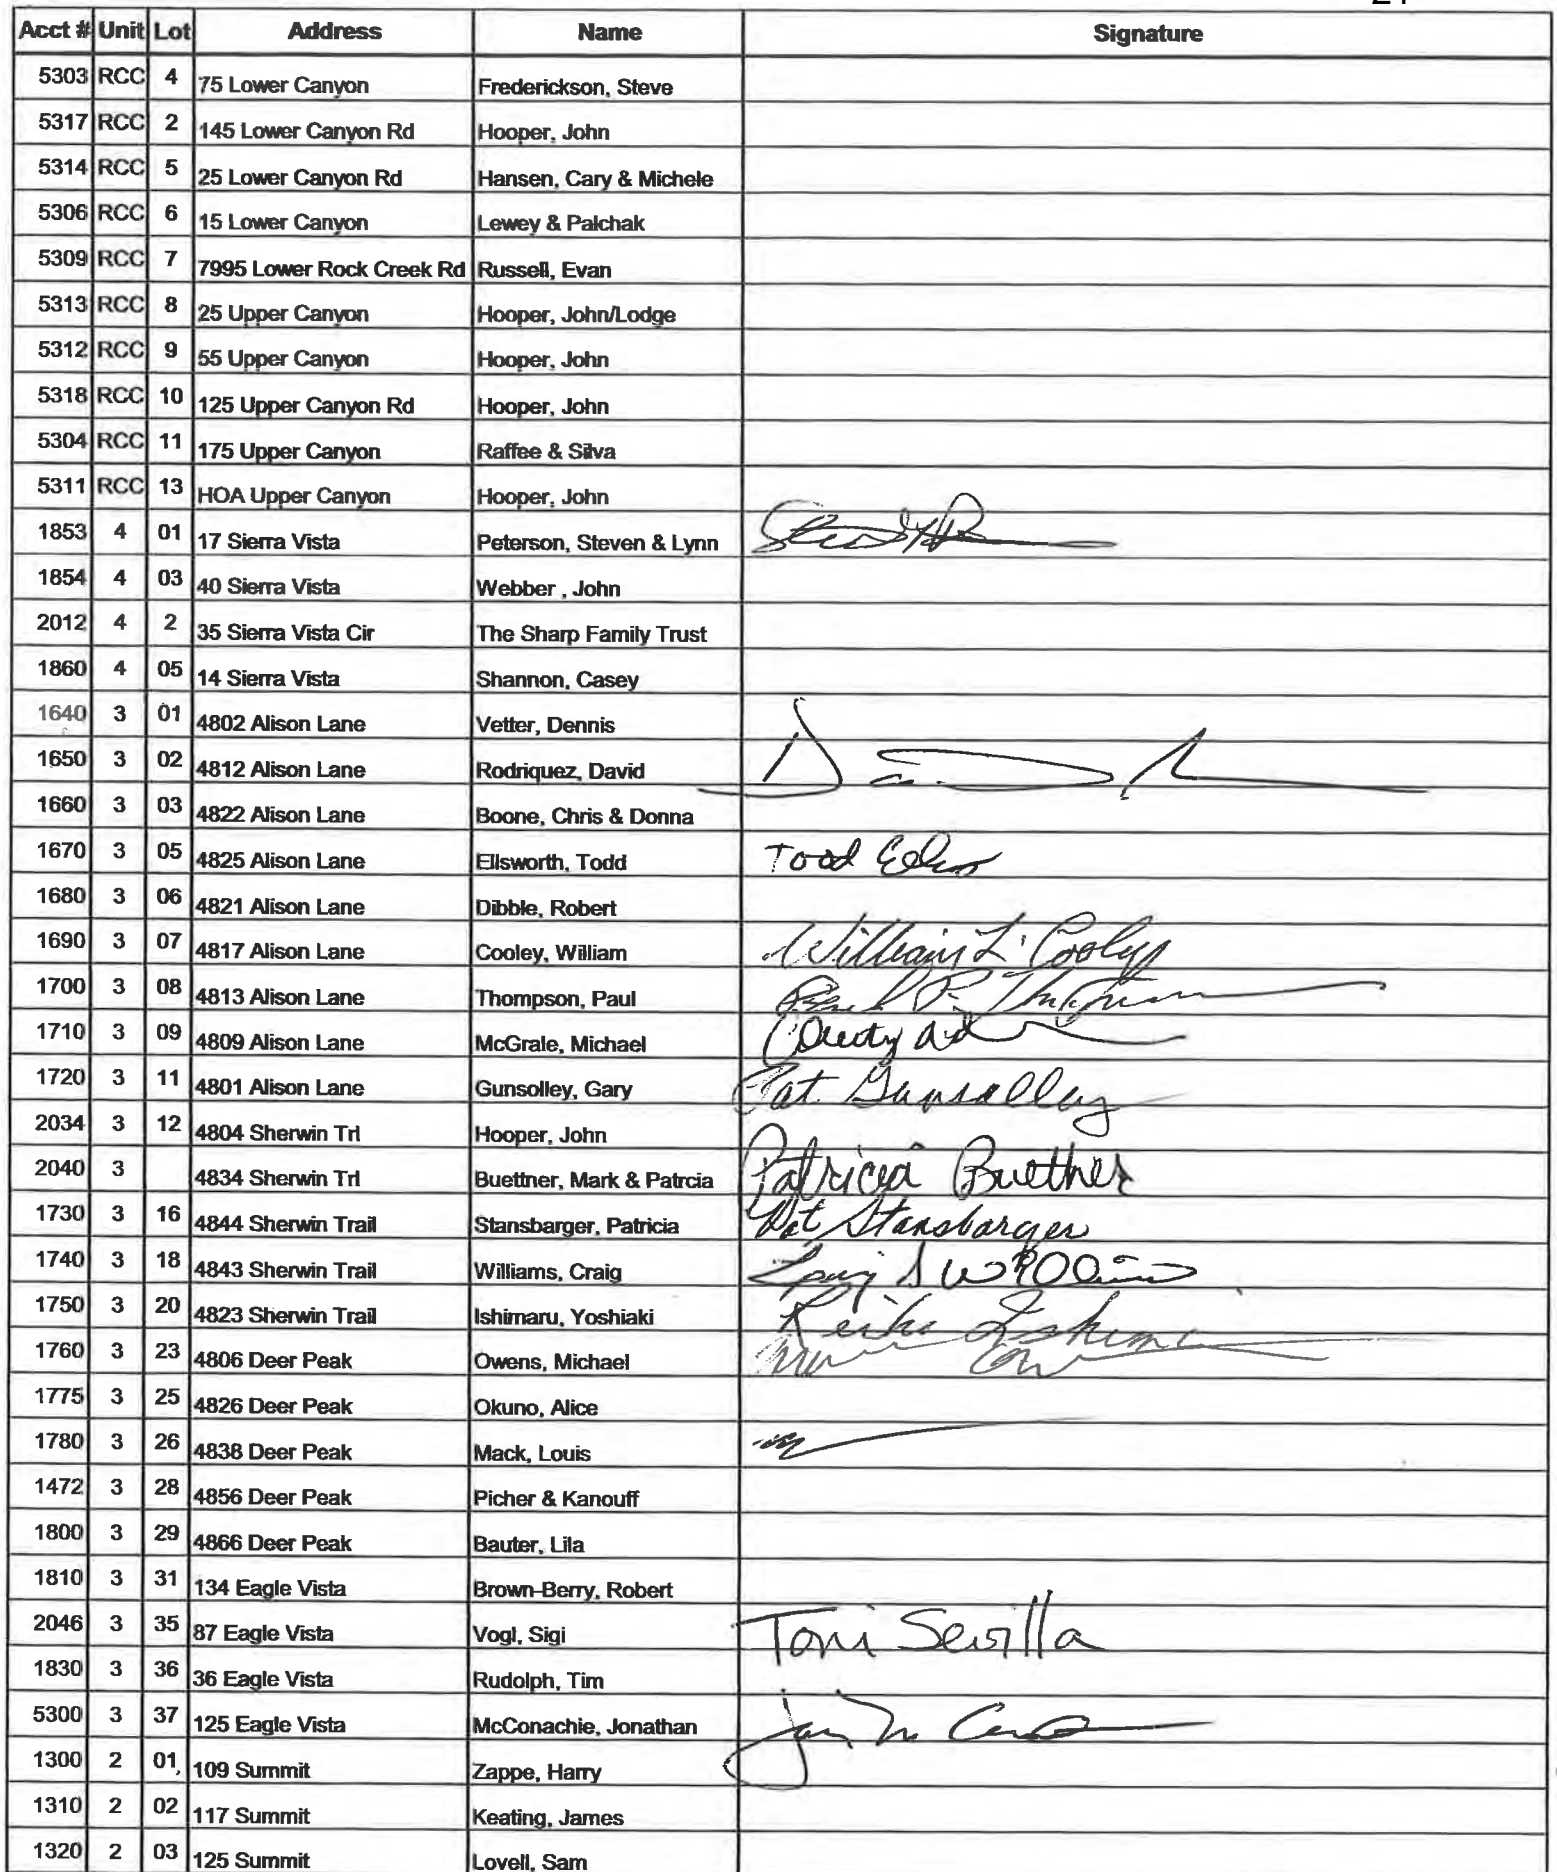 Acct # Unit Lot Address Name Signature
5303 RCC 4 75 Lower Canyon Frederickson, Steve
5317 RCC 2 145 Lower Canyon Rd Hooper, John
5314 RCC 5 25 Lower Canyon Rd Hansen, Cary & Michele
5306 RCC 6 15 Lower Canyon Lewey & Palchak
5309 RCC 7 7995 Lower Rock Creek Rd Russell, Evan
5313 RCC 8 25 Upper Canyon Hooper, John/Lodge
5312 RCC 9 55 Upper Canyon Hooper, John
5318 RCC 10 125 Upper Canyon Rd Hooper, John
5304 RCC 11 175 Upper Canyon Raffee & Silva
5311 RCC 13 HOA Upper Canyon Hooper, John
1853 4 01 17 Sierra Vista Peterson, Steven & Lynn
1854 4 03 40 Sierra Vista Webber , John
2012 4 2 35 Sierra Vista Cir The Sharp Family Trust
1860 4 05 14 Sierra Vista Shannon, Casey
1640 3 01 4802 Alison Lane Vetter, Dennis
1650 3 02 4812 Alison Lane Rodriquez, David
1660 3 03 4822 Alison Lane Boone, Chris & Donna
1670 3 05 4825 Alison Lane Ellsworth, Todd Todd
1680 3 06 4821 Alison Lane Dibble, Robert
1690 3 07 4817 Alison Lane Cooley, William William L. Cooley
1700 3 08 4813 Alison Lane Thompson, Paul Paul P. Thompson
1710 3 09 4809 Alison Lane McGrale, Michael
1720 3 11 4801 Alison Lane Gunsolley, Gary Pat Gunsolley
2034 3 12 4804 Sherwin Trl Hooper, John
2040 3 4834 Sherwin Trl Buettner, Mark & Patrcia Patricia Buettner
1730 3 16 4844 Sherwin Trail Stansbarger, Patricia Pat Stansbarger
1740 3 18 4843 Sherwin Trail Williams, Craig Craig S Williams
1750 3 20 4823 Sherwin Trail Ishimaru, Yoshiaki Keiko
1760 3 23 4806 Deer Peak Owens, Michael
1775 3 25 4826 Deer Peak Okuno, Alice
1780 3 26 4838 Deer Peak Mack, Louis
1472 3 28 4856 Deer Peak Picher & Kanouff
1800 3 29 4866 Deer Peak Bauter, Lila
1810 3 31 134 Eagle Vista Brown-Berry, Robert
2046 3 35 87 Eagle Vista Vogl, Sigi Toni Sevilla
1830 3 36 36 Eagle Vista Rudolph, Tim
5300 3 37 125 Eagle Vista McConachie, Jonathan
1300 2 01 109 Summit Zappe, Harry
1310 2 02 117 Summit Keating, James
1320 2 03 125 Summit Lovell, Sam